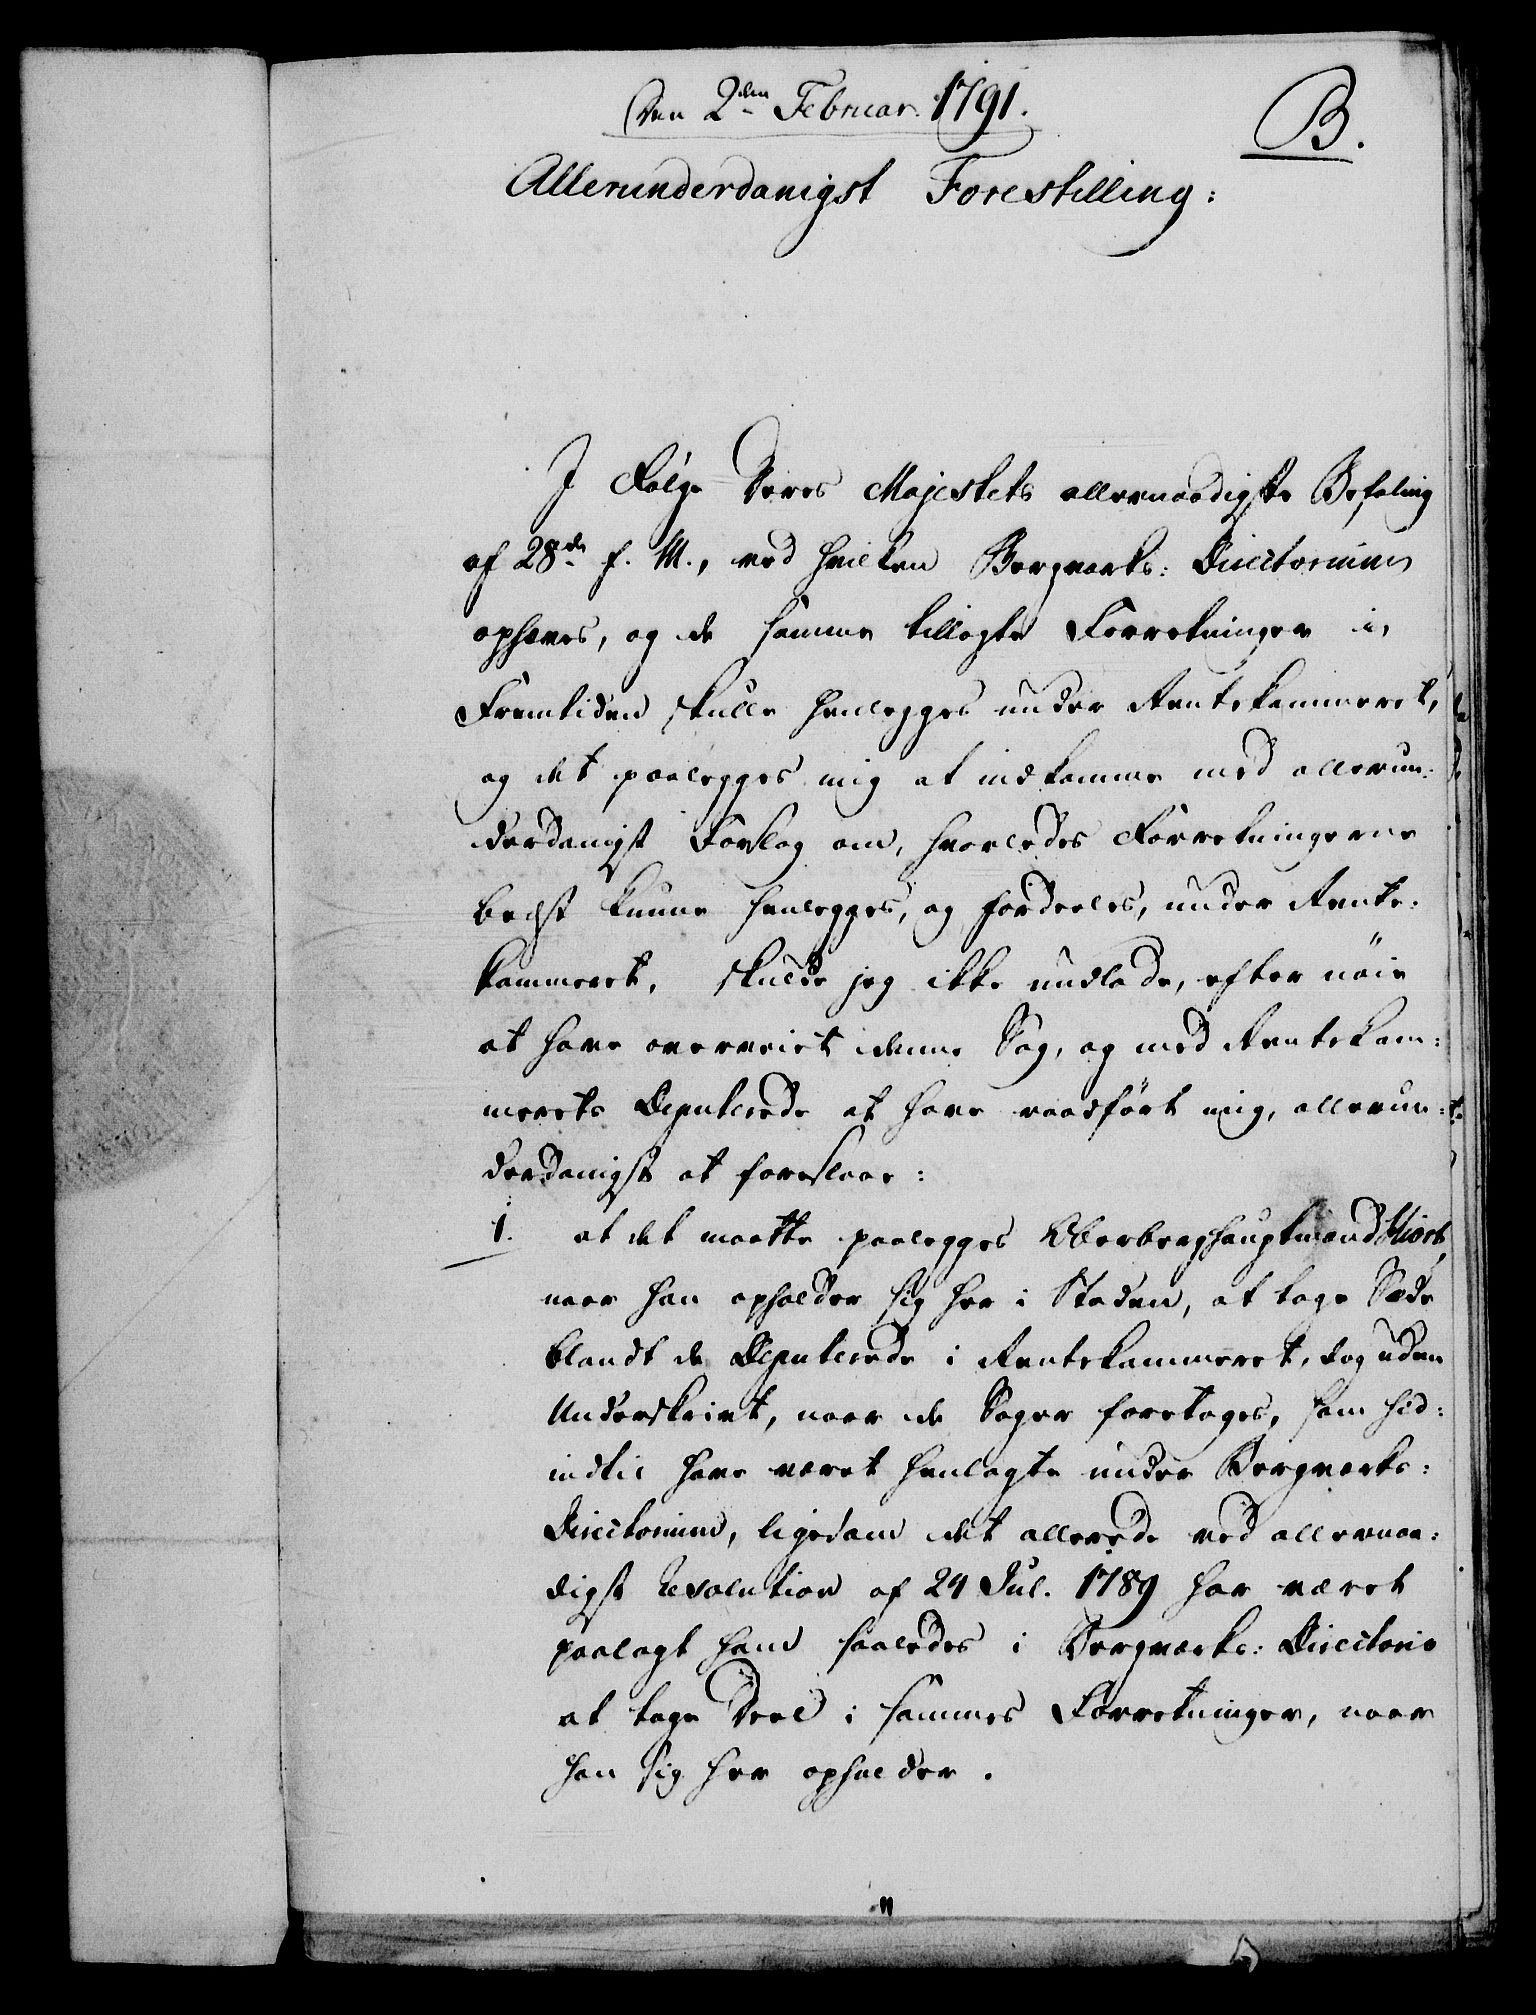 Den 2den Februar. 1791.
B.
Allerunderdanigst Forestilling:
I Følge Deres Majestets allernaadigste Befaling
af 28de f. M., ved hvilken Bergværks: Directorium
ophæves, og de samme tillagte Forretninger i
Fremtiden skulle henlegges under Rentekammeret,
og det paalegges mig at indkomme med allerun:
derdanigst Forslag om, hvorledes Forretningerne
bedst kunne henlegges, og fordeeles, under Rente:
kammeret, skulde jeg ikke undlade, efter nöie
at have overveiet denne Sag, og med Rentekam:
merets Deputerede at have raadfört mig, allerun:
derdanigst at foreslaae:
1. at det maatte paalegges Oberberghauptmand Hiort,
naar han opholder sig her i Staden, at tage Sæde
blandt de Deputerede i Rentekammeret, dog uden
Underskrivt, naar de Sager foretages, som hid:
indtil have været henlagte under Bergværks:
Directorium, ligesom det allerede ved allernaa:
digst Resolution af 24 Jul. 1789 har været
paalagt ham saaledes i Bergværks: Directorio
at tage Deel i sammes Forretninger, naar
han sig her opholder.